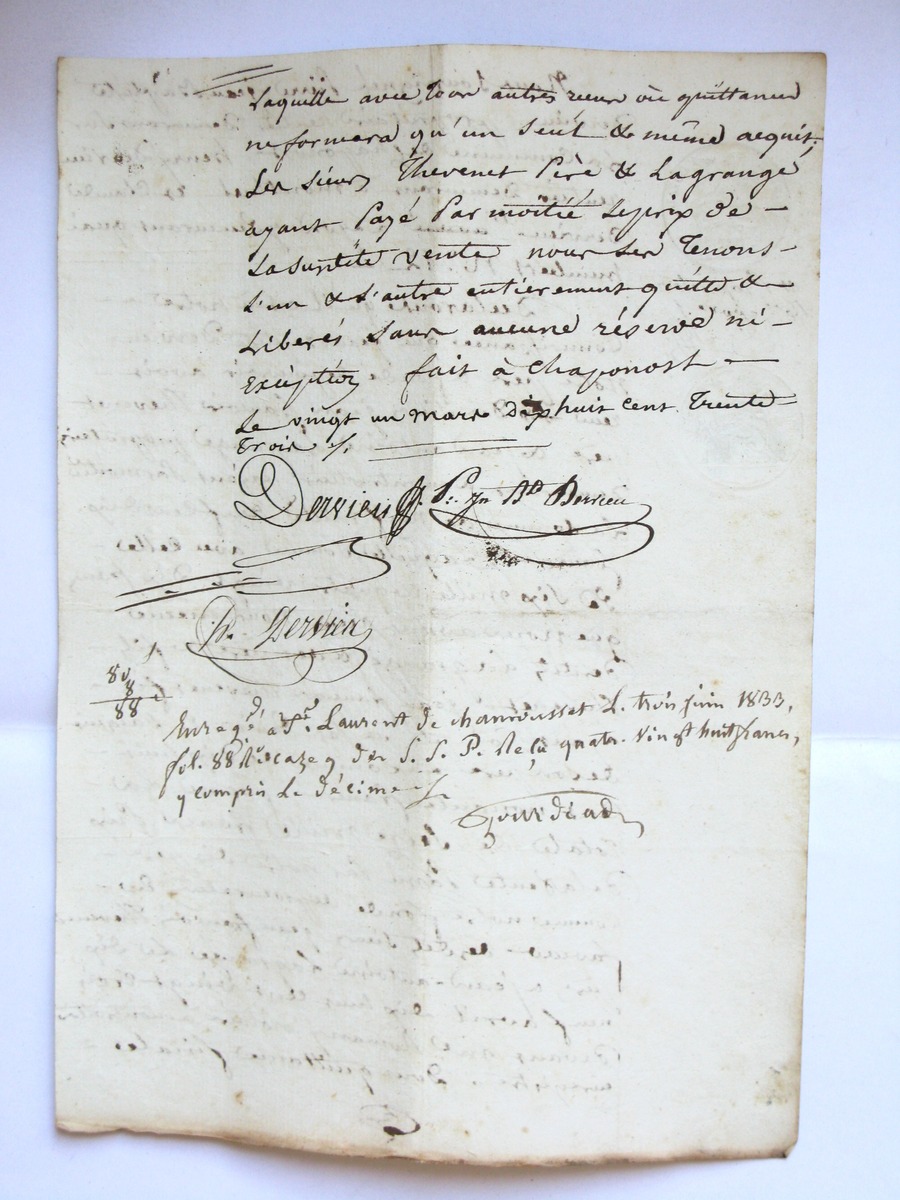 Laquelle avec tous autres recus où quittances
ne formera qu'un Seul & même acquit.
Les sieurs Thevenet Père & Lagrange
ayant Payé Par moitié Le prix de -
La Susdite vente nous Les Tenons -
L'un & L'autre entièrement quitte &
Liberés Sans aucune réserve ni -
Exception fait à Chaponost -
Le vingt un mars dixhuit cent Trente
Trois /.
Dervieu P. Jn Bte Dervieu
Dervieu
80
8
88
Enregd. à St. Laurent de chamousset L. trois juin 1833,
fol. 88 Ro. caze 9 des S. S. P. Reçu quatre-vingt huit francs,
y compris Le décime